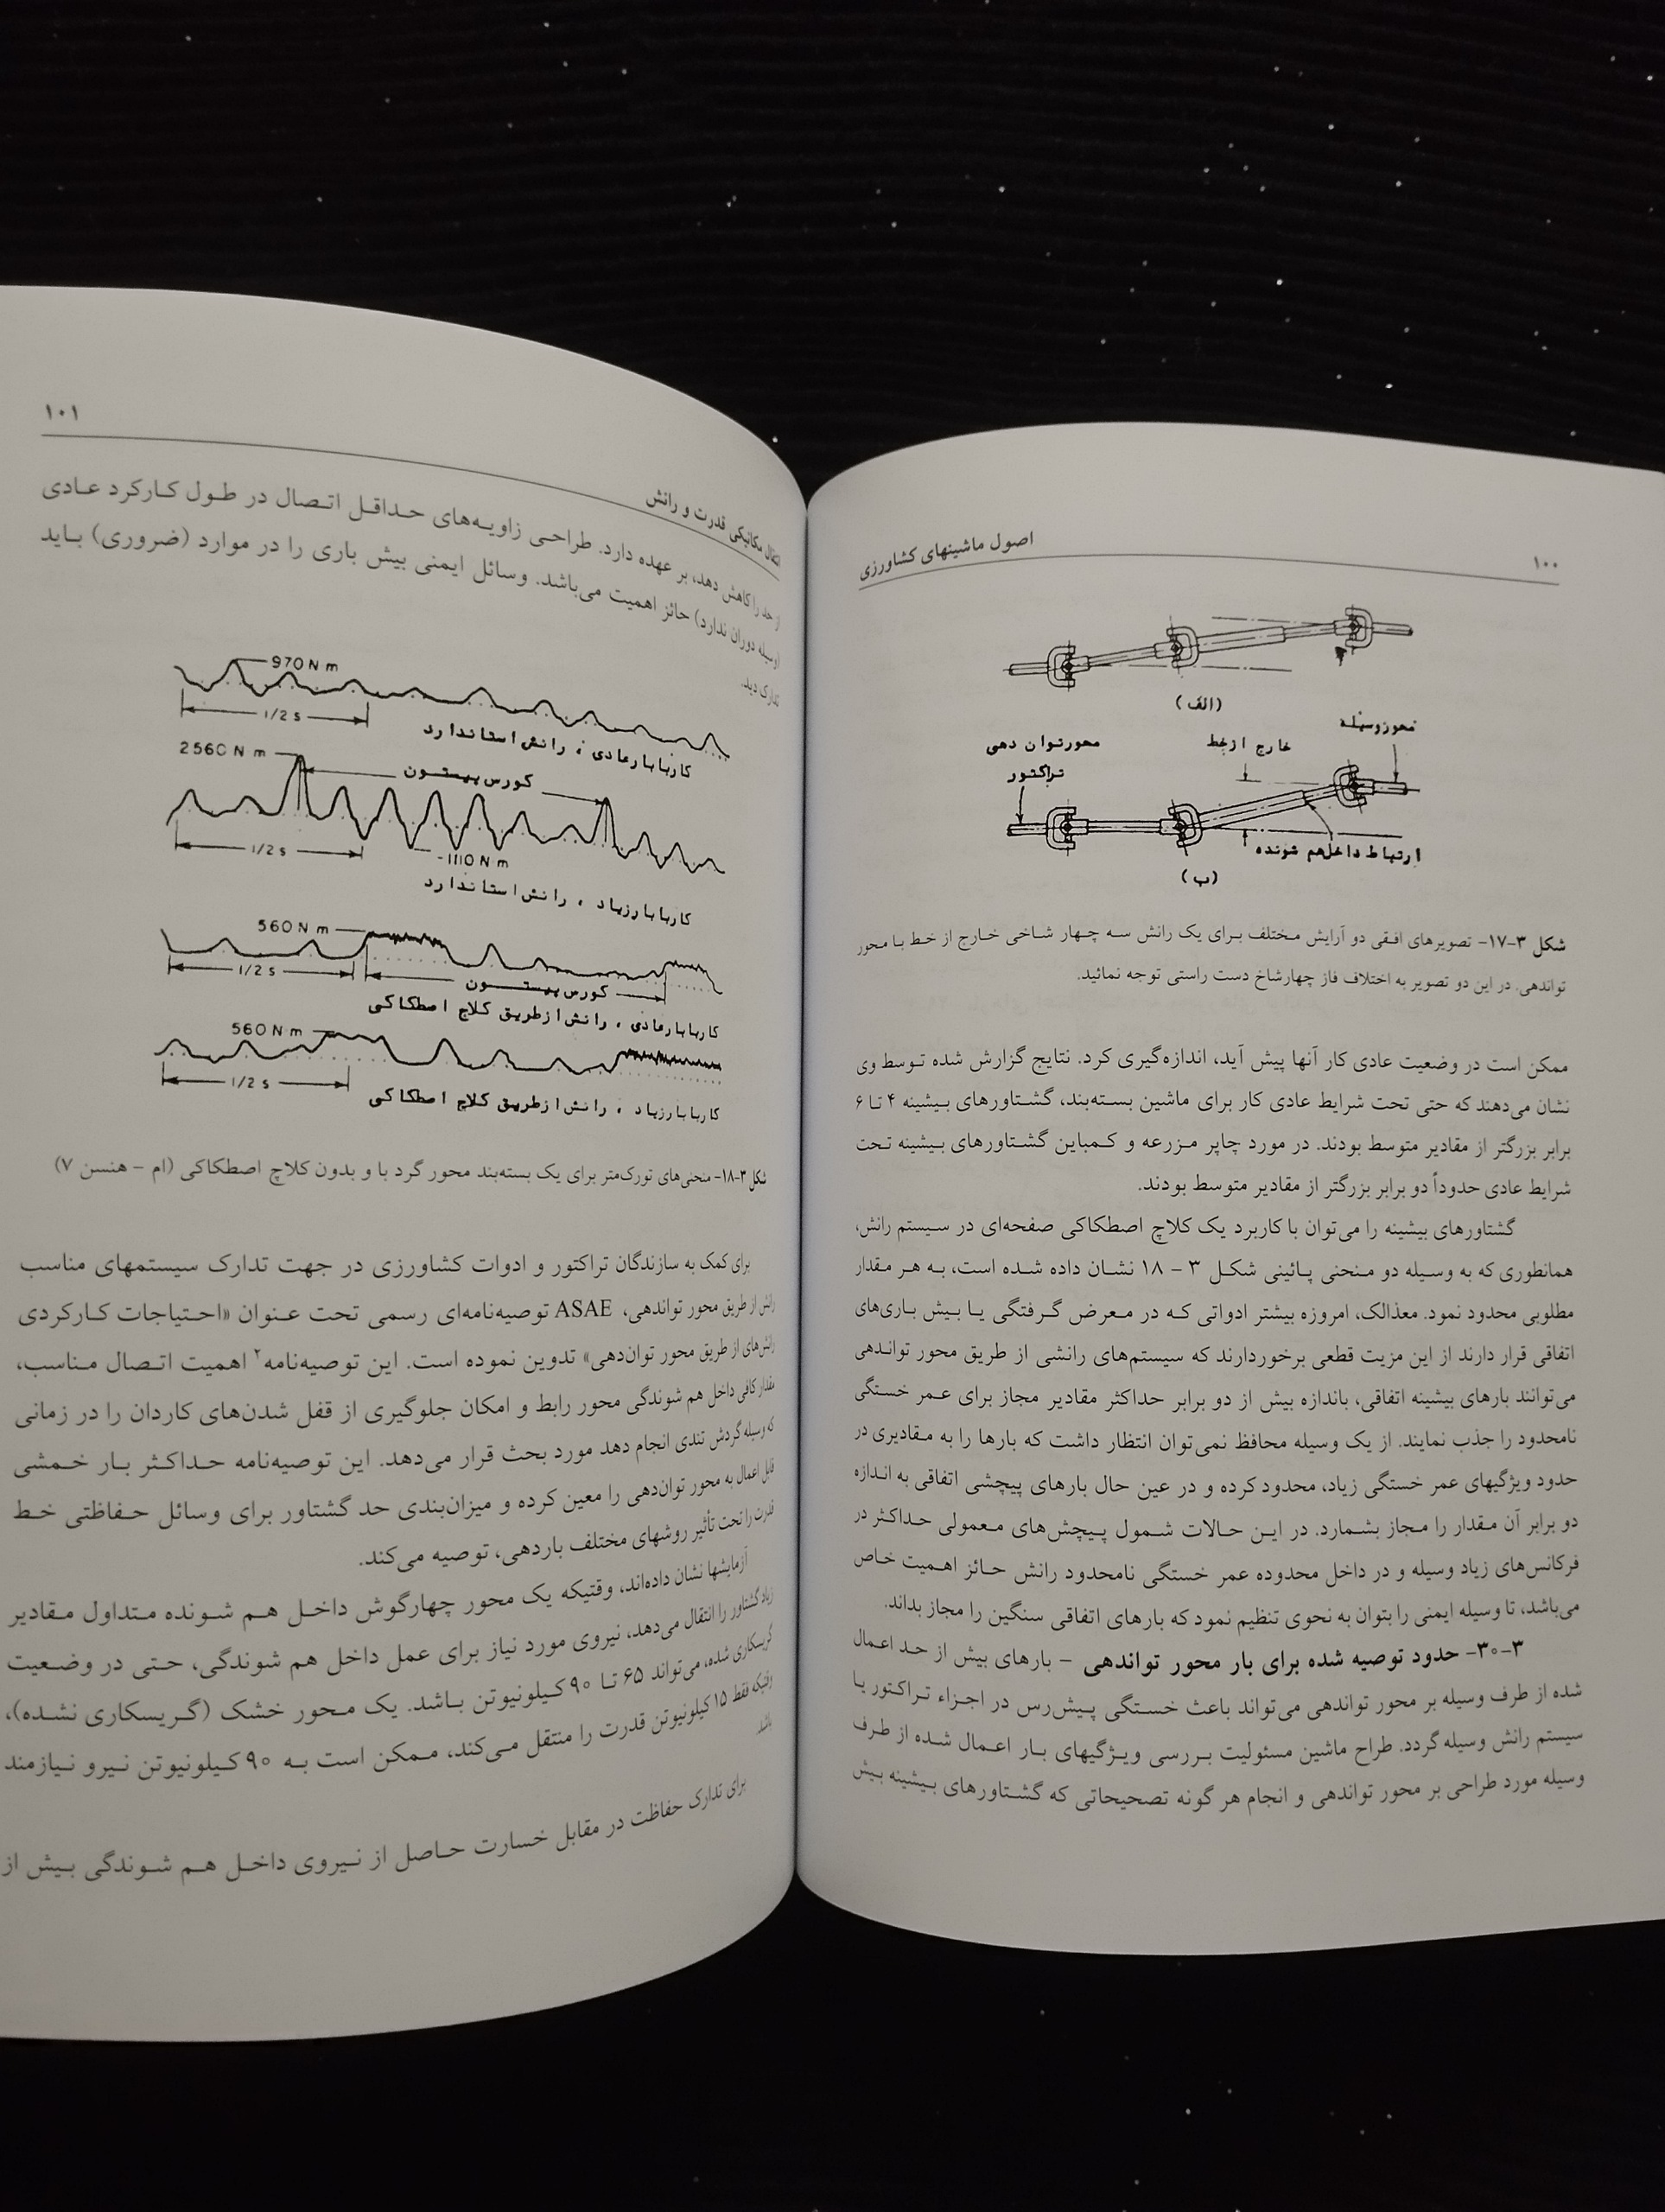 ۱۰۰
اصول ماشینهای کشاورزی
(الف)
محور وسیله
خارج از خط
محور توان دهی
تراکتور
ارتباط داخل هم شونده
(ب)
شکل ۳-۱۷- تصویرهای افقی دو آرایش مختلف برای یک رانش سه چهار شاخی خارج از خط با محور
تواندهی. در این دو تصویر به اختلاف فاز چهارشاخ دست راستی توجه نمائید.
ممکن است در وضعیت عادی کار آنها پیش آید، اندازه‌گیری کرد. نتایج گزارش شده توسط وی
نشان می‌دهند که حتی تحت شرایط عادی کار برای ماشین بسته‌بند، گشتاورهای بیشینه ۴ تا ۶
برابر بزرگتر از مقادیر متوسط بودند. در مورد چاپر مزرعه و کمباین گشتاورهای بیشینه تحت
شرایط عادی حدوداً دو برابر بزرگتر از مقادیر متوسط بودند.
گشتاورهای بیشینه را می‌توان با کاربرد یک کلاچ اصطکاکی صفحه‌ای در سیستم رانش،
همانطوری که به وسیله دو منحنی پائینی شکل ۳ – ۱۸ نشان داده شده است، به هر مقدار
مطلوبی محدود نمود. معذالک، امروزه بیشتر ادواتی که در معرض گرفتگی یا بیش باری‌های
اتفاقی قرار دارند از این مزیت قطعی برخوردارند که سیستم‌های رانشی از طریق محور تواندهی
می‌توانند بارهای بیشینه اتفاقی، باندازه بیش از دو برابر حداکثر مقادیر مجاز برای عمر خستگی
نامحدود را جذب نمایند. از یک وسیله محافظ نمی‌توان انتظار داشت که بارها را به مقادیری در
حدود ویژگیهای عمر خستگی زیاد، محدود کرده و در عین حال بارهای پیچشی اتفاقی به اندازه
دو برابر آن مقدار را مجاز بشمارد. در این حالات شمول پیچش‌های معمولی حداکثر در
فرکانس‌های زیاد وسیله و در داخل محدوده عمر خستگی نامحدود رانش حائز اهمیت خاص
می‌باشد، تا وسیله ایمنی را بتوان به نحوی تنظیم نمود که بارهای اتفاقی سنگین را مجاز بداند.
۳-۳۰- حدود توصیه شده برای بار محور تواندهی – بارهای بیش از حد اعمال
شده از طرف وسیله بر محور تواندهی می‌تواند باعث خستگی پیش‌رس در اجزاء تراکتور یا
سیستم رانش وسیله گردد. طراح ماشین مسئولیت بررسی ویژگیهای بار اعمال شده از طرف
وسیله مورد طراحی بر محور تواندهی و انجام هر گونه تصحیحاتی که گشتاورهای بیشینه بیش
انتقال مکانیکی قدرت و رانش
۱۰۱
از حد را کاهش دهد، بر عهده دارد. طراحی زاویه‌های حداقل اتصال در طول کارکرد عادی
(وسیله دوران ندارد) حائز اهمیت می‌باشد. وسائل ایمنی بیش باری را در موارد (ضروری) باید
تدارک دید.
970 N m
1/2 s
کار با بار عادی ، رانش استاندارد
2560 N m
کورس پیستون
1/2 s
-1110 N m
کار با بار زیاد ، رانش استاندارد
560 N m
1/2 s
کورس پیستون
کار با بار عادی ، رانش از طریق کلاچ اصطکاکی
560 N m
1/2 s
کار با بار زیاد ، رانش از طریق کلاچ اصطکاکی
شکل ۳-۱۸- منحنی‌های تورک‌متر برای یک بسته‌بند محور گرد با و بدون کلاچ اصطکاکی (ام – هنسن ۷)
برای کمک به سازندگان تراکتور و ادوات کشاورزی در جهت تدارک سیستمهای مناسب
رانش از طریق محور تواندهی، ASAE توصیه‌نامه‌ای رسمی تحت عنوان «احتیاجات کارکردی
رانش‌های از طریق محور توان‌دهی» تدوین نموده است. این توصیه‌نامه۲ اهمیت اتصال مناسب،
مقدار کافی داخل هم شوندگی محور رابط و امکان جلوگیری از قفل شدن‌های کاردان را در زمانی
که وسیله گردش تندی انجام دهد مورد بحث قرار می‌دهد. این توصیه‌نامه حداکثر بار خمشی
قابل اعمال به محور توان‌دهی را معین کرده و میزان‌بندی حد گشتاور برای وسائل حفاظتی خط
قدرت را تحت تأثیر روشهای مختلف باردهی، توصیه می‌کند.
آزمایشها نشان داده‌اند، وقتیکه یک محور چهارگوش داخل هم شونده متداول مقادیر
زیاد گشتاور را انتقال می‌دهد، نیروی مورد نیاز برای عمل داخل هم شوندگی، حتی در وضعیت
گریسکاری شده، می‌تواند ۶۵ تا ۹۰ کیلونیوتن باشد. یک محور خشک (گریسکاری نشده)،
وقتیکه فقط ۱۵ کیلونیوتن قدرت را منتقل می‌کند، ممکن است به ۹۰ کیلونیوتن نیرو نیازمند
باشد.
برای تدارک حفاظت در مقابل خسارت حاصل از نیروی داخل هم شوندگی بیش از